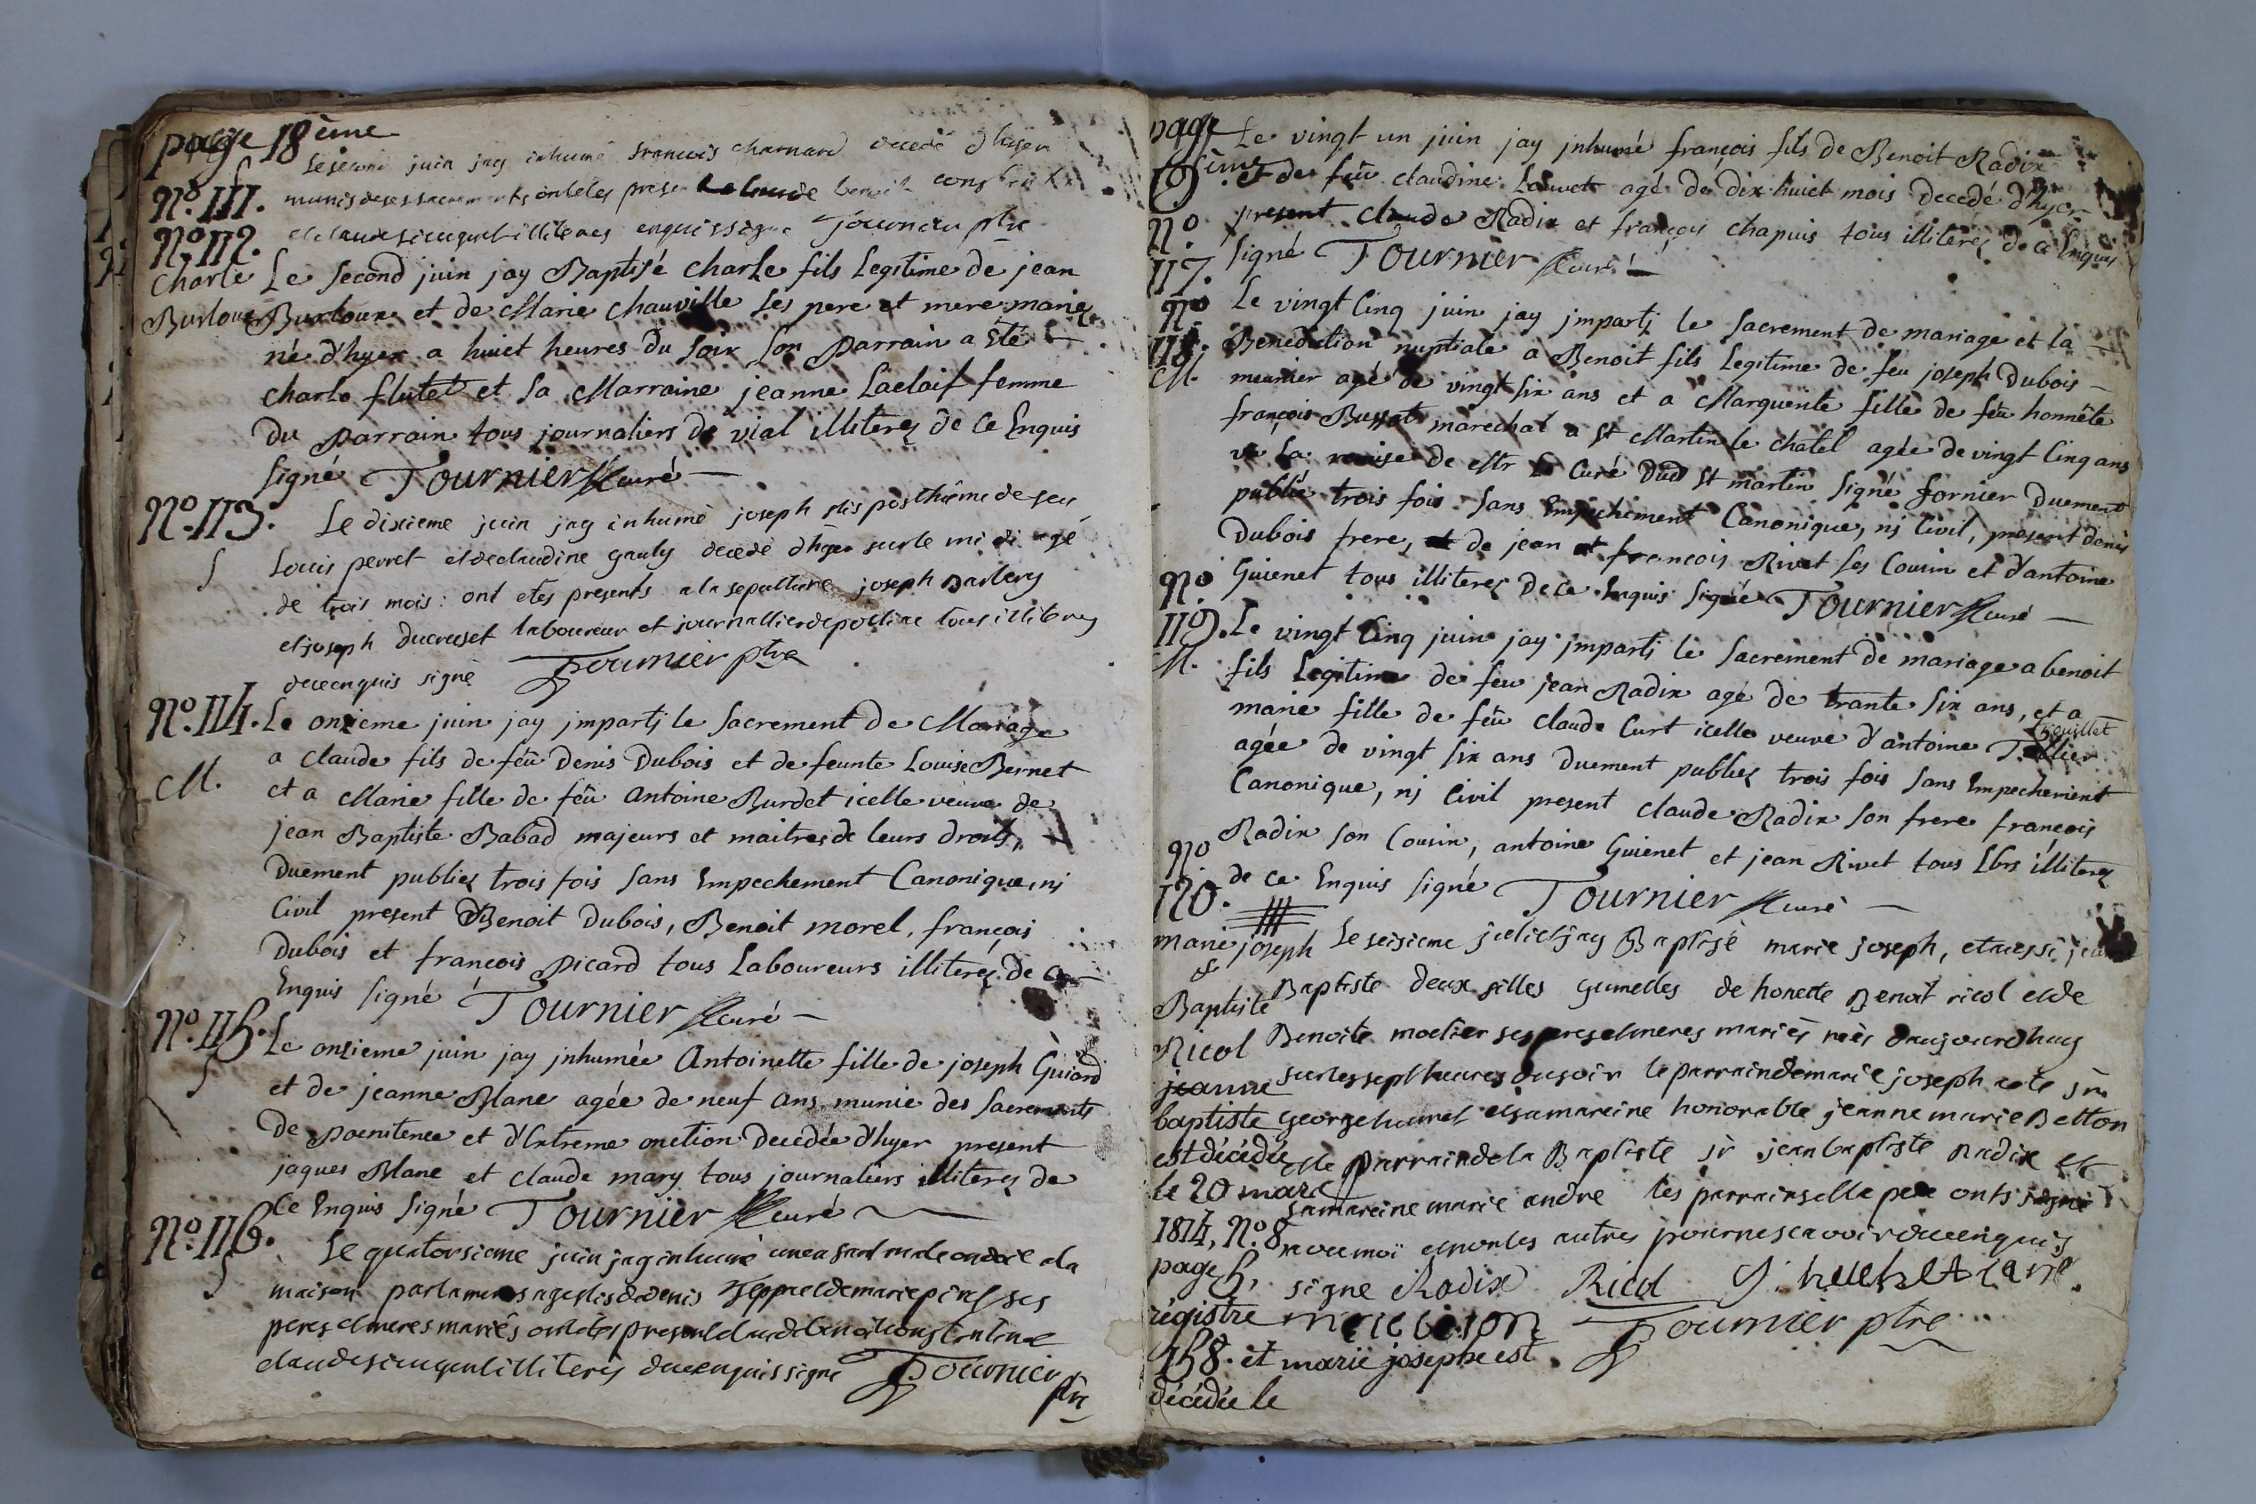 page 18ème
Le second juin jay inhumé francois charnard decedé d'hyer
No. 111. munis de ses sacrements ont etes presents claude benoit
S
No. 112. et claude illiteres enquis signe Tournier ptre
Charle Le second juin jay Baptisé charle fils Legitime de jean
Burloux Burloux et de Marie chauville ses pere et mere mariez
né d'hyer a huict heures du soir son parrain a été
charle flutet et sa Marraine jeanne Laclaif femme
du parrain tous journaliers de vial illiterez de ce Enquis
signé Tournier curé
No. 113. Le dixieme juin jay inhumé joseph fils posthume de feu
S Louis perret et de claudine gauly decedé d'hyer sur le midi agé
de trois mois: ont etes presents a la sepulture joseph Barbery
et joseph ducreuset laboureur et journallier de poeliae tous illiterez
de ce enquis signé Tournier ptre
No. 114. Le onzieme juin jay imparti le sacrement de Mariage
M. a claude fils de feû Denis Dubois et de feunte Louise Bernet
et a Marie fille de feû antoine Burdet icelle veuve de
jean Baptiste Babad majeurs et maitres de leurs droits,
Duement publiez trois fois sans Empechement Canonique, ni
Civil present Benoit Dubois, Benoit morel, françois
Dubois et françois picard tous Laboureurs illiterez de ce
Enquis signé Tournier curé
No. 115. Le onzieme juin jay inhumée Antoinette fille de joseph Guiard
S et de jeanne Blanc agée de neuf ans munie des sacrements
de poenitence et d'Extreme onction decedée d'hyer present
jaques Blanc et claude mary tous journaliers illiterez de
Ce Enquis signé Tournier curé
No. 116. Le quatorsieme juin jay inhumé un enfant male ondoié a la
S maison par la mere sage fils de denis et de marie ses
peres et meres mariés ont etes present claude benoit constantin et
claude illiterés de ce enquis signe Tournier
ptre
page Le vingt un juin jay inhumé françois fils de Benoit Radix
9ème et de feû claudine Louvet agé de dix huict mois decedé d'hyer
No. present claude Radix et françois chapuis tous illiterez de ce Enquis
117. signé Tournier curé
No Le vingt Cinq juin jay imparti le sacrement de mariage et la
118. Benediction nuptiale a Benoit fils Legitime de feu joseph Dubois
M. meunier agé de vingt six ans et a Marguerite fille de feu honnête
françois Bussot marechal a St Martin le chatel agée de vingt cinq ans
vu la remise de Mr Le Curé dud St martin signé fornier Duement
publié trois fois sans Empechement Canonique, ni Civil, present denis
Dubois frere, et de jean et françois Rivet ses Cousin et d'antoine
No Guienet tous illiterez de ce Enquis signé Tournier curé
119. Le vingt Cinq juin jay imparti le sacrement de mariage a benoit
M. fils Legitime de feu jean Radix agé de trante six ans, et a
marie fille de feû Claude Curt icelle veuve d'antoine Tissier Trouillet
agée de vingt six ans Duement publiez trois fois sans Empechement
Canonique, ni Civil present claude Radix son frere françois
No Radix son Cousin, antoine Guienet et jean Rivet tous Lbrs illiterez
120. de ce Enquis signé Tournier curé
marie joseph Le seisieme juliet jay Baptisé marie joseph, et aussi jean
& Baptiste Baptiste deux filles gumelles de honette Benoit ricol et de
Ricol Benoite modier ses peres et meres mariés nées d'aujourdhuy
jeanne sur les sept heures du soir le parrain de marie joseph a ete sr
baptiste george huvet et sa mareine honorable jeanne marie Betton
est décédée et le parrain de la Baptiste sr jean baptiste Radix et
le 20 mars sa mareine marie andre les parrains et le pere onts signé
1814, No. 8 avec moi et non les autres pour ne scavoir de ce enquis
page 5, signe Radix Ricol
régistre Tournier ptre
158. et marie josephe est
décédée le